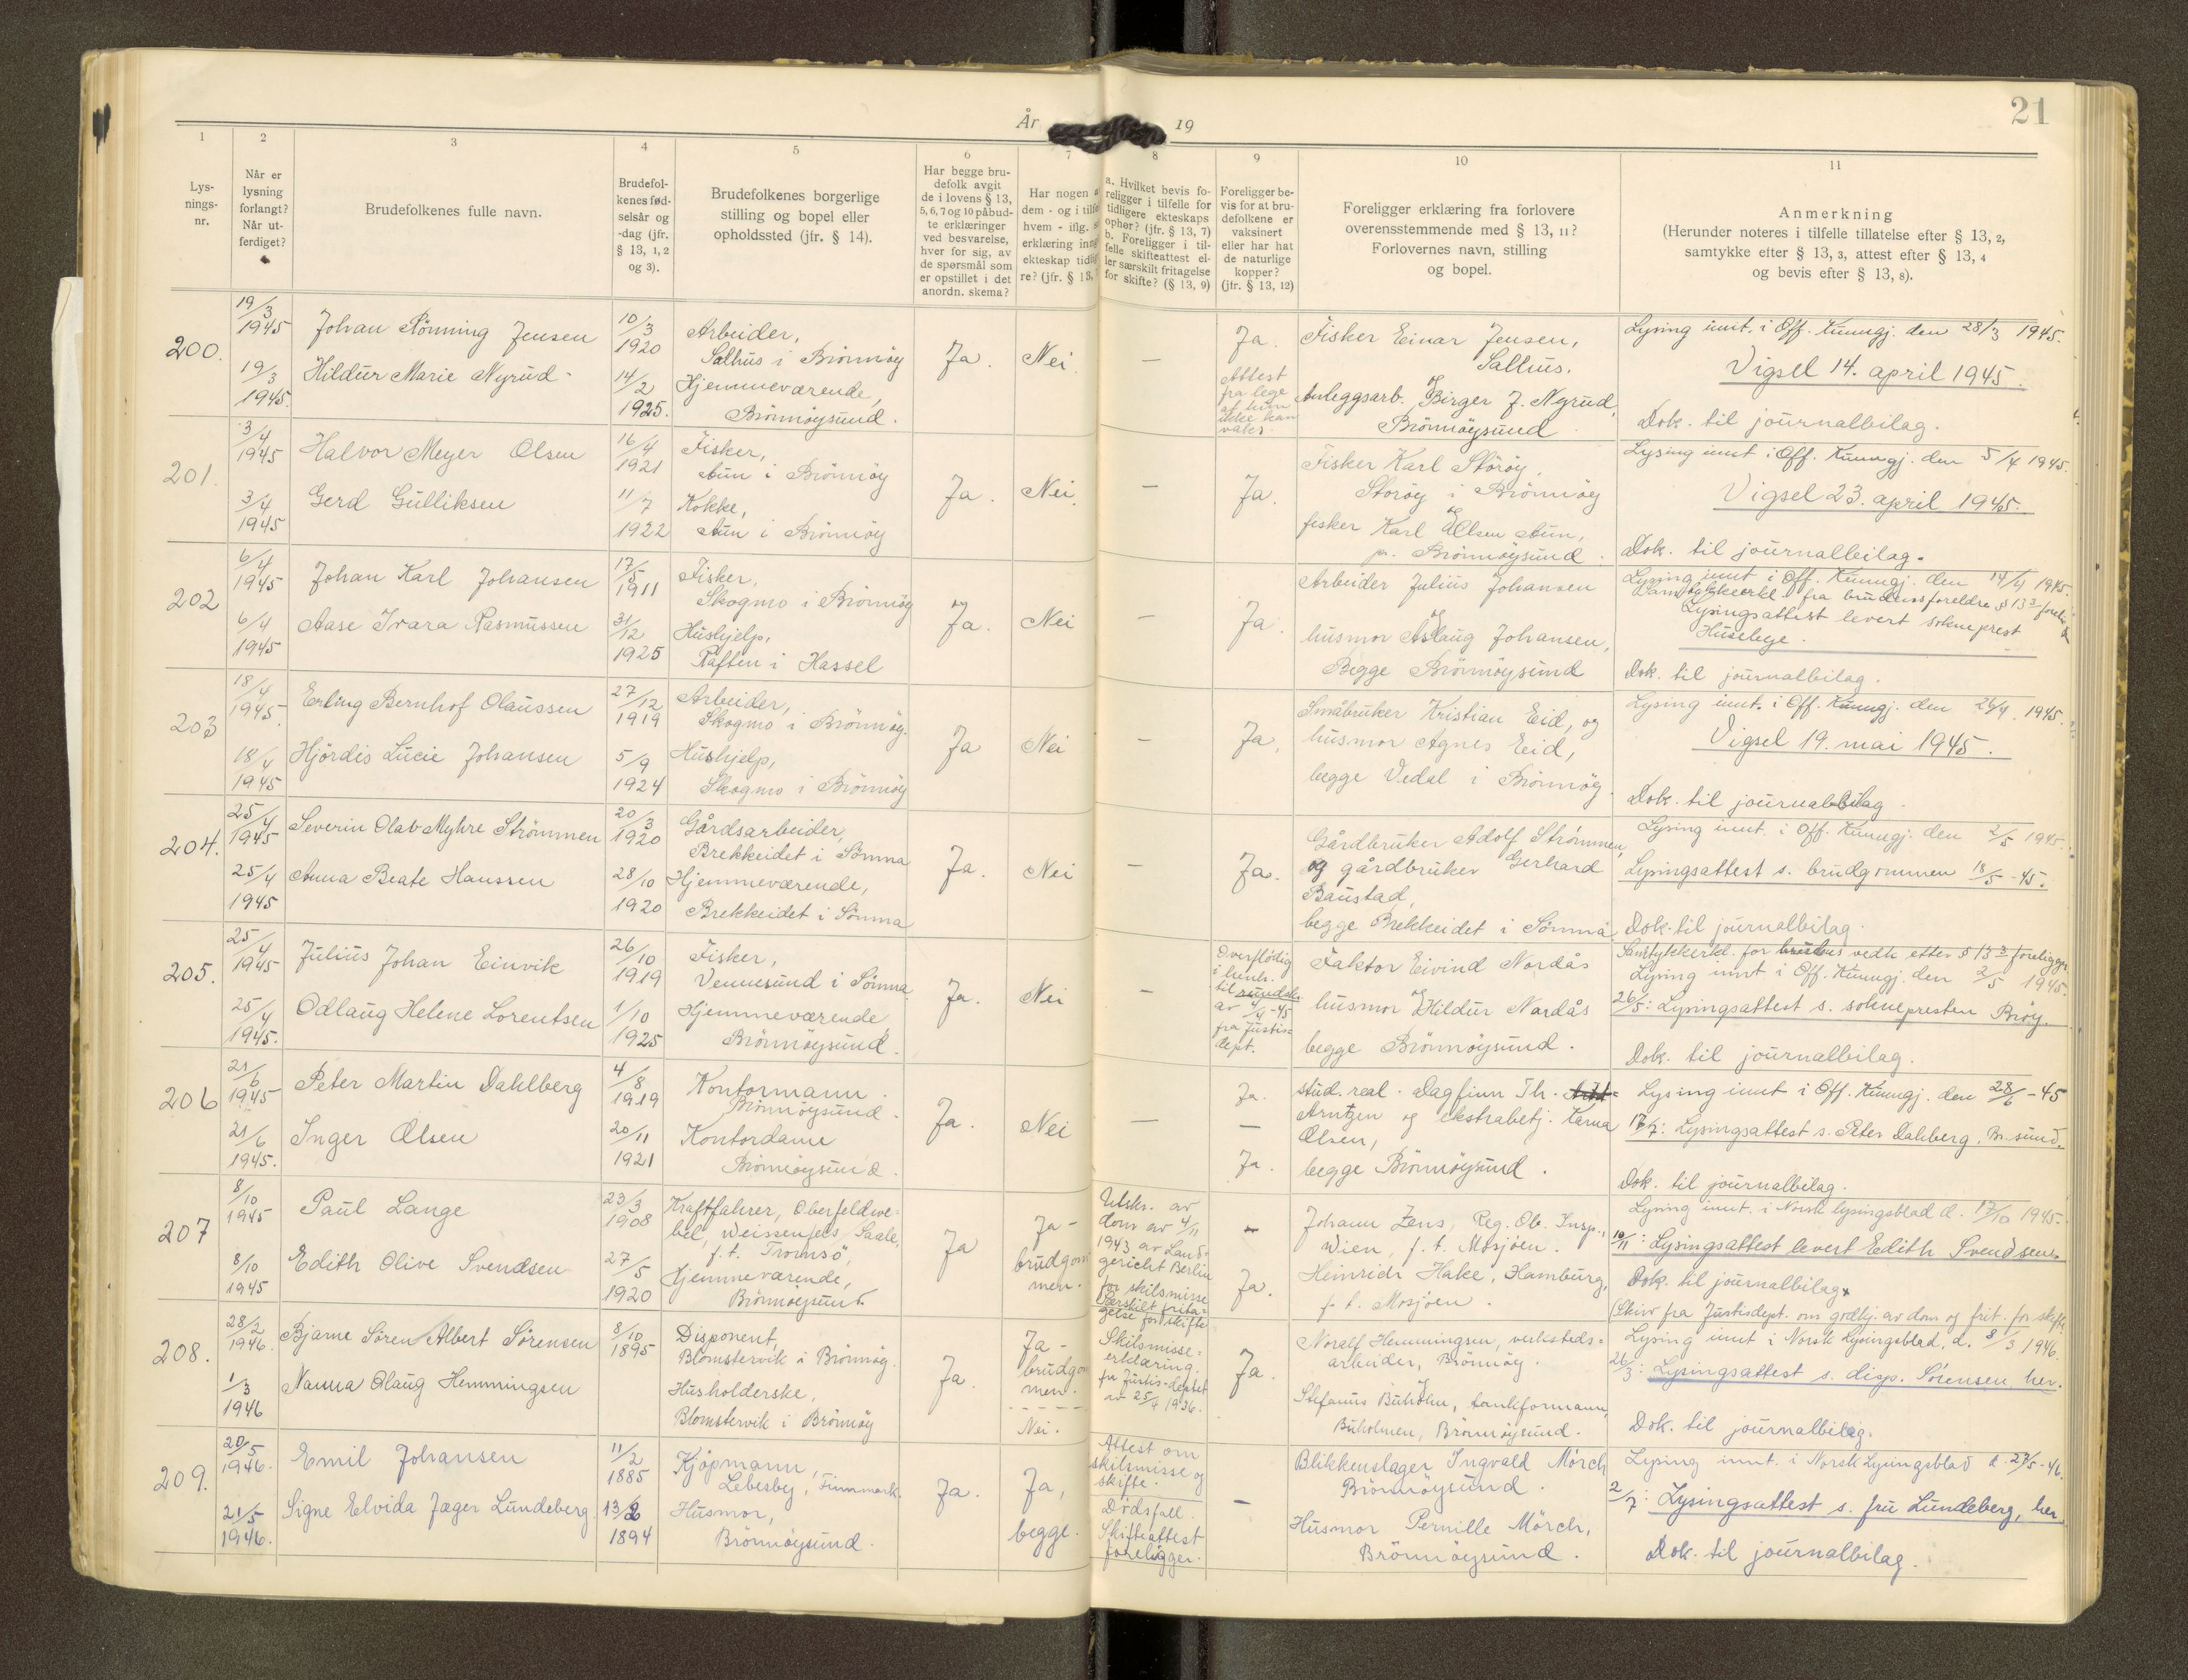 21
År 19
1 2 3 4 5 6 7 8 9 10 11
Lys-
nings-
nr.
Når er
lysning
forlangt?
Når ut-
ferdiget?
Brudefolkenes fulle navn.
Brudefol-
kenes fød-
selsår og
-dag (jfr.
§ 13, 1, 2
og 3).
Brudefolkenes borgerlige
stilling og bopel eller
opholdssted (jfr. § 14).
Har begge bru-
defolk avgit
de i lovens § 13,
5, 6, 7 og 10 påbud-
te erklæringer
ved besvarelse,
hver for sig, av
de spørsmål som
er opstillet i det
anordn. skema?
Har nogen
dem - og i tilfe
hvem - iflg.
erklæring inng
ekteskap tidlig
re? (jfr. § 13,
a. Hvilket bevis fo-
religger i tilfelle for
tidligere ekteskaps
ophør? (jfr. § 13, 7)
b. Foreligger i til-
felle skifteattest el-
ler særskilt fritagelse
for skifte? (§ 13, 9)
Foreligger be-
vis for at bru-
defolkene er
vaksinert
eller har hat
de naturlige
kopper?
(jfr. § 13, 12)
Foreligger erklæring fra forlovere
overensstemmende med § 13, 11?
Forlovernes navn, stilling
og bopel.
Anmerkning
(Herunder noteres i tilfelle tillatelse efter § 13, 2,
samtykke efter § 13, 3, attest efter § 13, 4
og bevis efter § 13, 8).
200.
19/3
1945
Johan Rönning Jensen
10/3
1920
Arbeider,
Salhus i Brönnöy
19/3
1945.
Hildur Marie Nyrud
14/2
1925.
Hjemmeværende,
Brönnöysund.
Ja.
Nei.
—
Ja.
Attest
fra lege
at hun
ikke kan
vaks.
Fisker Einar Jensen,
Salhus.
og
Anleggsarb. Birger J. Nyrud,
Brönnöysund
Lysing innt. i Off. Kunngj. den 28/3 1945.
Vigsel 14. april 1945.
Dok. til journalbilag.
201.
3/4
1945
Halvor Meyer Olsen
16/4
1921
Fisker,
Aun i Brönnöy
3/4
1945
Gerd Gulliksen
11/7
1922
Kokke,
Aun i Brönnöy
Ja.
Nei.
—
Ja.
Fisker Karl Störöy,
Storöy i Brönnöy
og
fisker Karl Olsen Aun,
pr. Brönnöysund.
Lysing innt i Off. Kunngj. den 5/4 1945.
Vigsel 23. april 1945.
Dok. til journalbilag.
202
6/4
1945
Johan Karl Johansen
17/5
1911
Fisker,
Skogmo i Brönnöy
6/4
1945
Aase Ivara Rasmussen
31/12
1925
Hushjelp,
Raften i Hassel
Ja.
Nei
—
Ja.
Arbeider Julius Johansen
og
husmor Aslaug Johansen,
Begge Brönnöysund
Lysing innt i Off. Kunngj. den 14/4 1945.
fra brudensforeldre § 13 3
Lysingsattest levert sokneprest
Huseleye.
Dok. til journalbilag.
203
18/4
1945.
Erling Bernhof Olaussen
27/12
1919
Arbeider,
Skogmo i Brönnöy.
18/4
1945
Hjördis Lucie Johansen
5/9
1924
Hushjelp,
Skogmo i Brönnöy
Ja
Nei
—
Ja,
Småbruker Kristian Eid, og
husmor Agnes Eid,
begge Vedal i Brönnöy.
Lysing innt. i Off. Kunngj. den 26/4. 1945.
Vigsel 19. mai 1945.
Dok. til journalbilag.
204.
25/4
1945
Severin Olav Myhre Strömmen
20/3
1920
Gårdsarbeider,
Brekkeidet i Sömna
25/4
1945
Anna Beate Hanssen
28/10
1920
Hjemmeværende,
Brekkeidet i Sömna
Ja.
Nei
—
Ja.
Gårdbruker Adolf Strömmen,
og gårdbruker Gerhard
Baustad,
begge Brekkeidet i Sömna
Lysing innt. i Off. Kunngj. den 2/5 1945.
Lysingsattest s. brudgommen 18/5 - 45.
Dok. til journalbilag.
205.
25/4
1945
Julius Johan Einvik
26/10
1919
Fisker,
Vennesund i Sömna.
25/4
1945.
Odlaug Helene Lorentsen
1/10
1925
Hjemmeværende
Brönnöysund.
Ja.
Nei
—
Overflödig
i henh.
til rundskr.
av 4/4-45
fra Justis-
dept.
Faktor Eivind Nordås
og
husmor Hildur Nordås
begge Brönnöysund.
Samtykkerkl. for brudens vedk. etter § 13 3 foreligger
Lysing innt i Off. Kunngj. den 2/5 1945.
26/5: Lysingsattest s. soknepresten Bröy.
Dok. til journalbilag.
206
21/6
1945
Peter Martin Dahlberg
4/8
1919
Kontormann.
Brönnöysund.
21/6
1945.
Inger Olsen
20/11
1921
Kontordame
Brönnöysund.
Ja.
Nei
—
Ja.
—
Ja.
stud. real. Dagfinn Th.
Arntzen og ekstrabetj. Karna
Olsen,
begge Brönnöysund.
Lysing innt i Off. Kunngj. den 28/6 - 45
17/7: Lysingsattest s. Peter Dahlberg, Br.sund.
Dok. til journalbilag.
207
8/10
1945
Paul Lange
23/3
1908
Kraftfahrer, Oberfeldwe-
bel, Weissenfels, Saale,
f. t. Tromsö,
8/10
1945
Edith Olive Svendsen
27/5
1920
Hjemmeværende,
Brönnöysund.
Ja
Ja -
brudgom
men.
Utskr. av
dom av 4/11
1943 av Land-
gericht Berlin
for skilsmisse
Særskilt frita-
gelse for skifte
—
Ja.
Johann Zens, Reg. Ob. Insp.,
Wien, f. t. Mosjöen.
Heinrich Hake, Hamburg,
f. t. Mosjöen.
Lysing innt. i Norsk lysingsblad d. 17/10 1945.
10/11: Lysingsattest levert Edith Svendsen.
Dok. til journalbilag
(Skriv fra Justisdept. om godkj. av dom og frit. for skifte.
208.
28/2
1946.
Bjarne Sören Albert Sörensen
8/10
1895
Disponent,
Blomstervik i Brönnöy.
1/3
1946
Nanna Olaug Hemmingsen
Husholderske,
Blomstervik i Brönnöy
Ja.
Ja -
brudgom
men.
Nei.
Skilsmisse-
erklæring.
fr Justis-deptet
av 25/4 1936.
Ja.
Noralf Hemmingsen, verksteds-
arbeider, Brönnöy.
og
Stefanus Buholm, tankformann,
Buholmen, Brönnöysund.
Lysing innt i Norsk Lysingsblad, d. 8/3 1946.
26/3: Lysingsattest s. disp. Sörensen, her.
Dok. til journalbilag.
209.
20/5
1946.
Emil Johansen
11/2
1885
Kjöpmann,
Lebesby, Finnmark.
21/5
1946.
Signe Elvida Jæger Lundeberg
13/8
1894
Husmor,
Brönnöysund.
Ja.
Ja,
begge.
Attest om
skilsmisse og
skifte.
Dödsfall.
Skifteattest
foreligger.
—
Blikkenslager Ingvald Mörch
Brönnöysund.
Husmor Pernille Mörch,
Brönnöysund.
Lysing innt. i Norsk Lysingsblad d. 27/5-46.
2/7: Lysingsattest s. fru Lundeberg, her
Dok. til journalbilag.